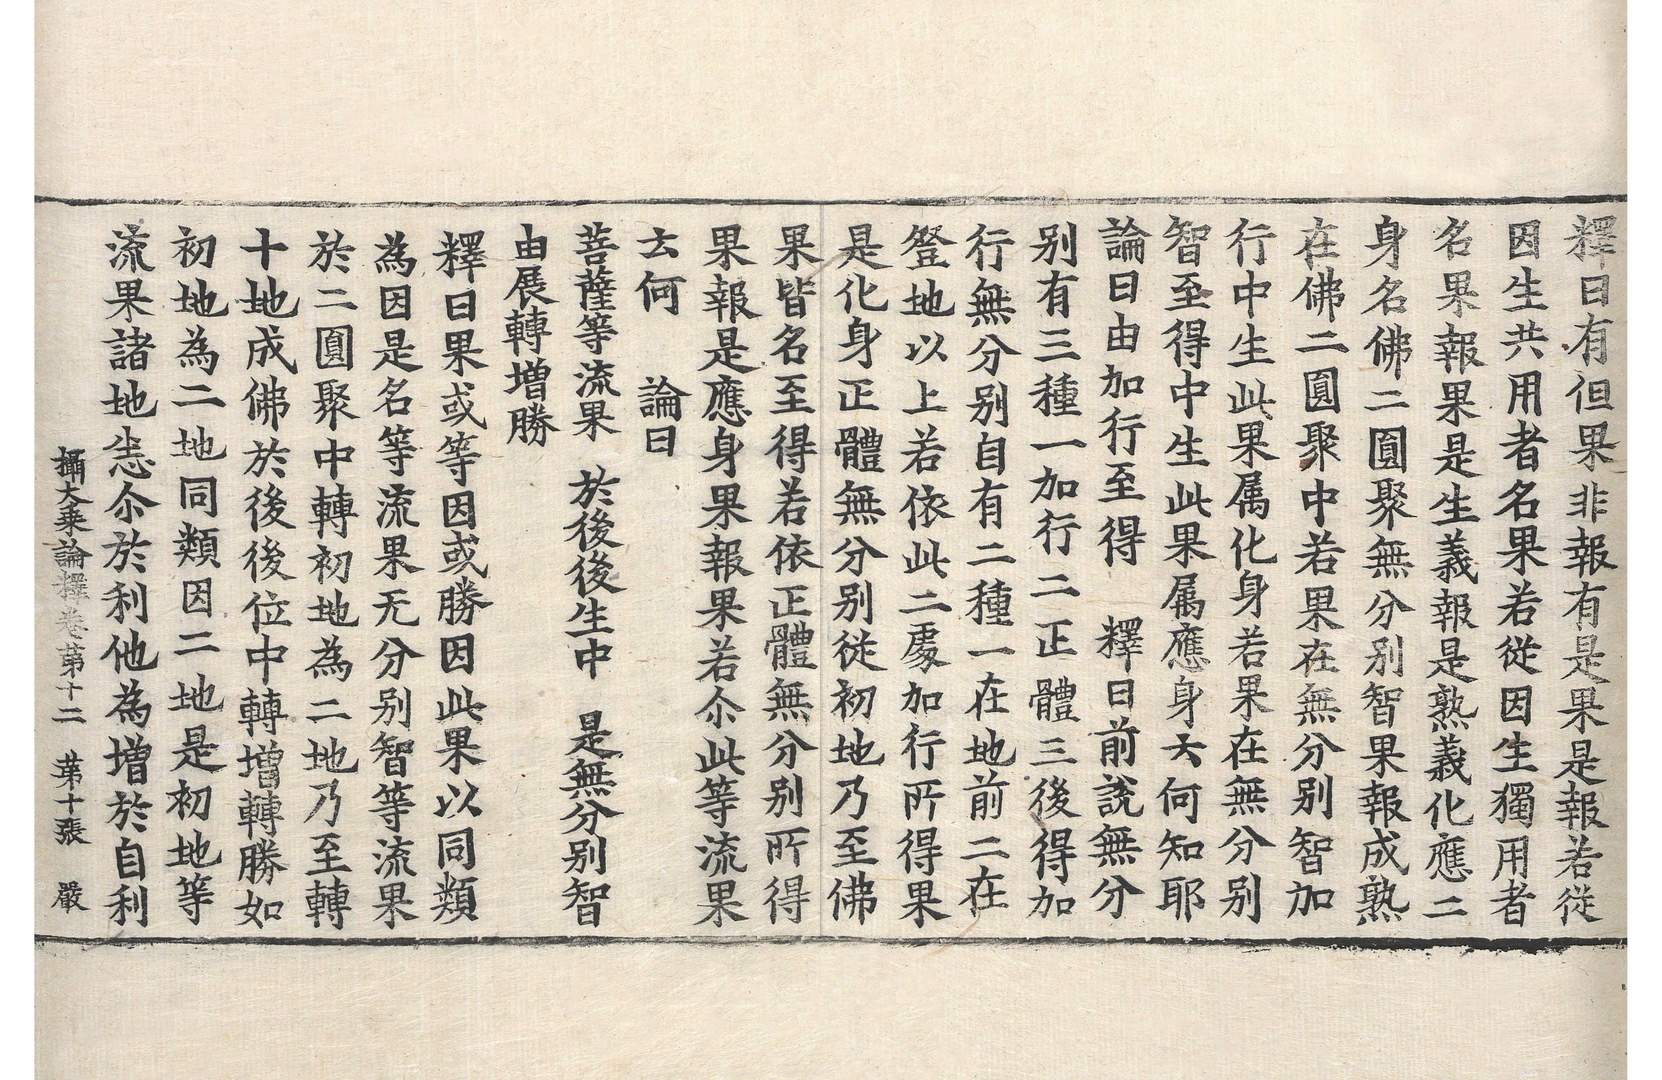 釋曰有但果非報有是果是報若從
因生共用者名果若從因生獨用者
名果報果是生義報是熟義化應二
身名佛二圓聚無分別智果報成熟
在佛二圓聚中若果在無分別智加
行中生此果属化身若果在無分別
智至得中生此果属應身云何知耶
論曰由加行至得　釋曰前說無分
別有三種一加行二正體三後得加
行無分別自有二種一在地前二在
登地以上若依此二處加行所得果
是化身正體無分別從初地乃至佛
果皆名至得若依正體無分別所得
果報是應身果報果若尒此等流果
云何　論曰
菩薩等流果　於後後生中　是無分別智
由展轉增勝
釋曰果或等因或勝因此果以同類
為因是名等流果无分別智等流果
於二圓聚中轉初地為二地乃至轉
十地成佛於後後位中轉增轉勝如
初地為二地同類因二地是初地等
流果諸地悉尒於利他為增於自利
攝大乘論釋卷第十二　第十張　嚴